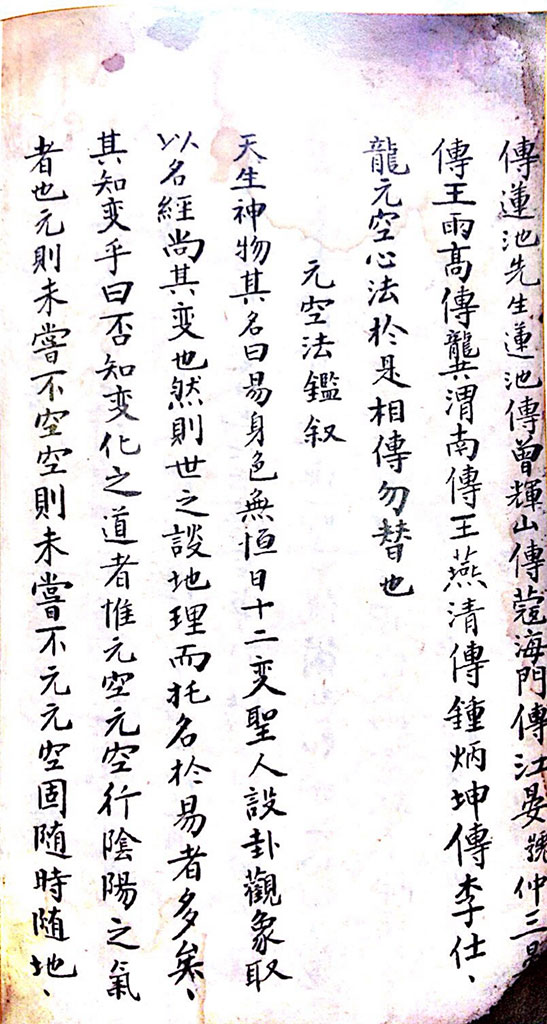 傳蓮池先生蓮池傳曾輝山傳蔻海門傳江晏號仲三
傳王雨高傳龔渭南傳王燕清傳鍾炳坤傳李仕、
龍元空心法於是相傳勿替也
元空法鑑叙
天生神物其名曰易身色無恒日十二变聖人設卦觀象取
以名經尚其变也然則世之談地理而托名於易者多矣、
其知变乎曰否知变化之道者惟元空元空行陰陽之氣
者也元則未嘗不空空則未嘗不元元空固随時随地、